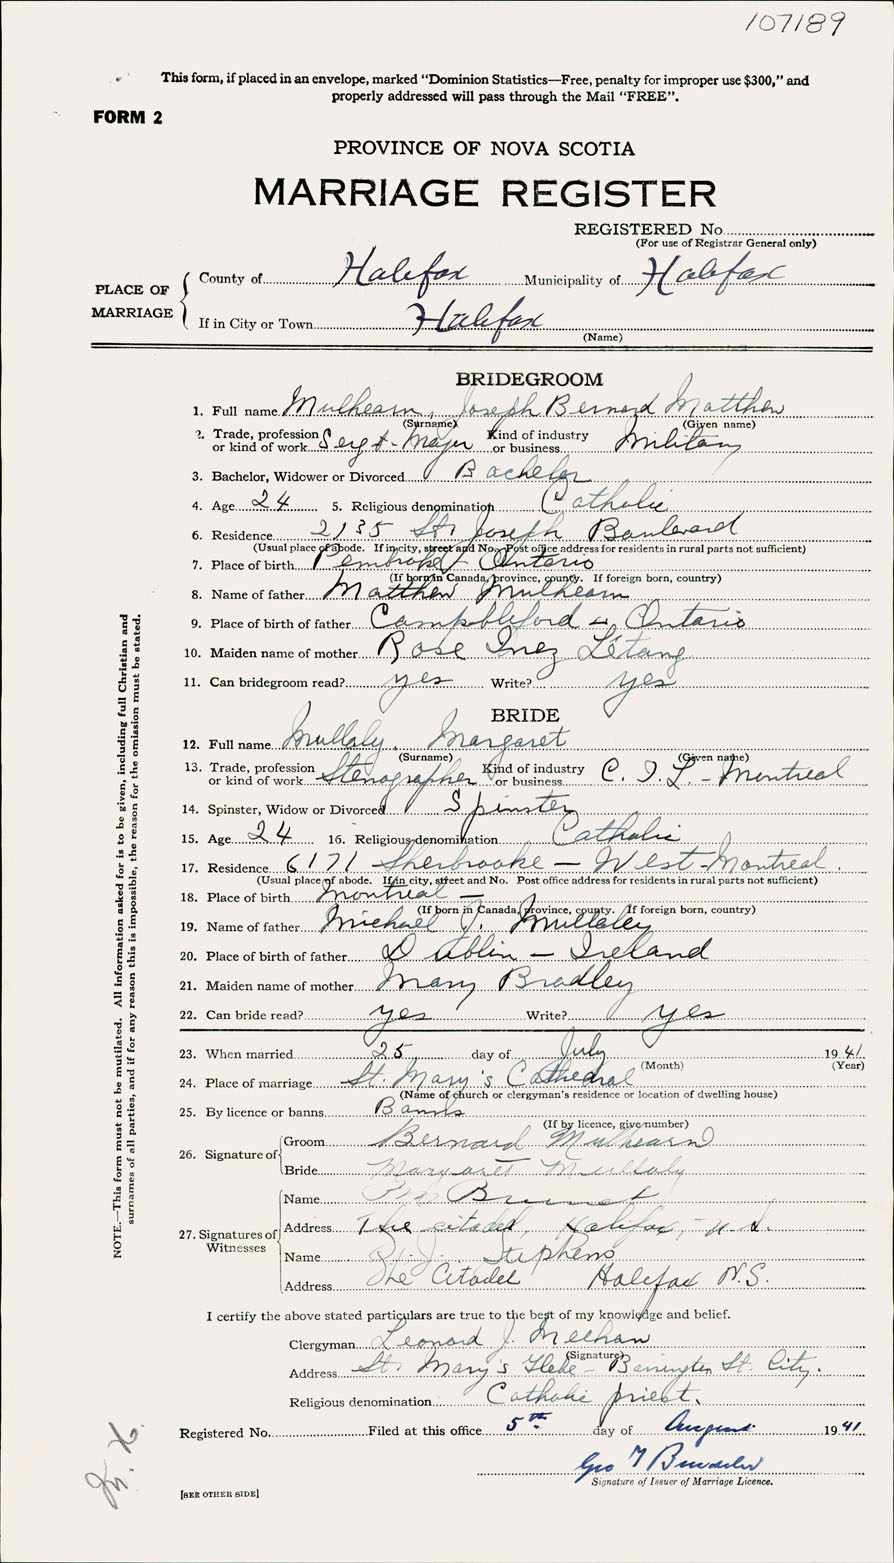 107189
This form, if placed in an envelope, marked “Dominion Statistics—Free, penalty for improper use $300,” and
properly addressed will pass through the Mail “FREE”.
FORM 2
PROVINCE OF NOVA SCOTIA
MARRIAGE REGISTER
REGISTERED No.
(For use of Registrar General only)
PLACE OF MARRIAGE
County of Halifax Municipality of Halifax
If in City or Town Halifax
(Name)
BRIDEGROOM
1. Full name Mulhearn, Joseph Bernard Matthew
(Surname) (Given name)
2. Trade, profession or kind of work Sergt-Major Kind of industry or business Military
3. Bachelor, Widower or Divorced Bachelor
4. Age 24 5. Religious denomination Catholic
6. Residence 2135 St. Joseph Boulevard
(Usual place of abode. If in city, street and No. Post office address for residents in rural parts not sufficient)
7. Place of birth Pembroke - Ontario
(If born in Canada, province, county. If foreign born, country)
8. Name of father Matthew Mulhearn
9. Place of birth of father Campbleford - Ontario
10. Maiden name of mother Rose Inez Létang
11. Can bridegroom read? yes Write? yes
BRIDE
12. Full name Mullaly, Margaret
(Surname) (Given name)
13. Trade, profession or kind of work Stenographer Kind of industry or business C.I.L. - Montreal
14. Spinster, Widow or Divorced Spinster
15. Age 24 16. Religious denomination Catholic
17. Residence 6171 Sherbrooke — West - Montreal.
(Usual place of abode. If in city, street and No. Post office address for residents in rural parts not sufficient)
18. Place of birth Montreal —
(If born in Canada, province, county. If foreign born, country)
19. Name of father Michael J. Mullaley
20. Place of birth of father Dublin — Ireland
21. Maiden name of mother Mary Bradley
22. Can bride read? yes Write? yes
23. When married 25 day of July 1941
(Month) (Year)
24. Place of marriage St. Mary's Cathedral
(Name of church or clergyman's residence or location of dwelling house)
25. By licence or banns Banns
(If by licence, give number)
26. Signature of
Groom Bernard Mulhearn
Bride Margaret Mullaly
27. Signatures of Witnesses
Name
Address The citadel, Halifax, N.S.
Name Stephens
Address The Citadel Halifax N.S.
I certify the above stated particulars are true to the best of my knowledge and belief.
Clergyman Leonard J. Meehan
(Signature)
Address St. Mary's Glebe - Barrington St. City.
Religious denomination Catholic priest.
Registered No. Filed at this office 5th day of August 1941
Geo
Signature of Issuer of Marriage Licence.
[SEE OTHER SIDE]
NOTE.—This form must not be mutilated. All information asked for is to be given, including full Christian and
surnames of all parties, and if for any reason this is impossible, the reason for the omission must be stated.